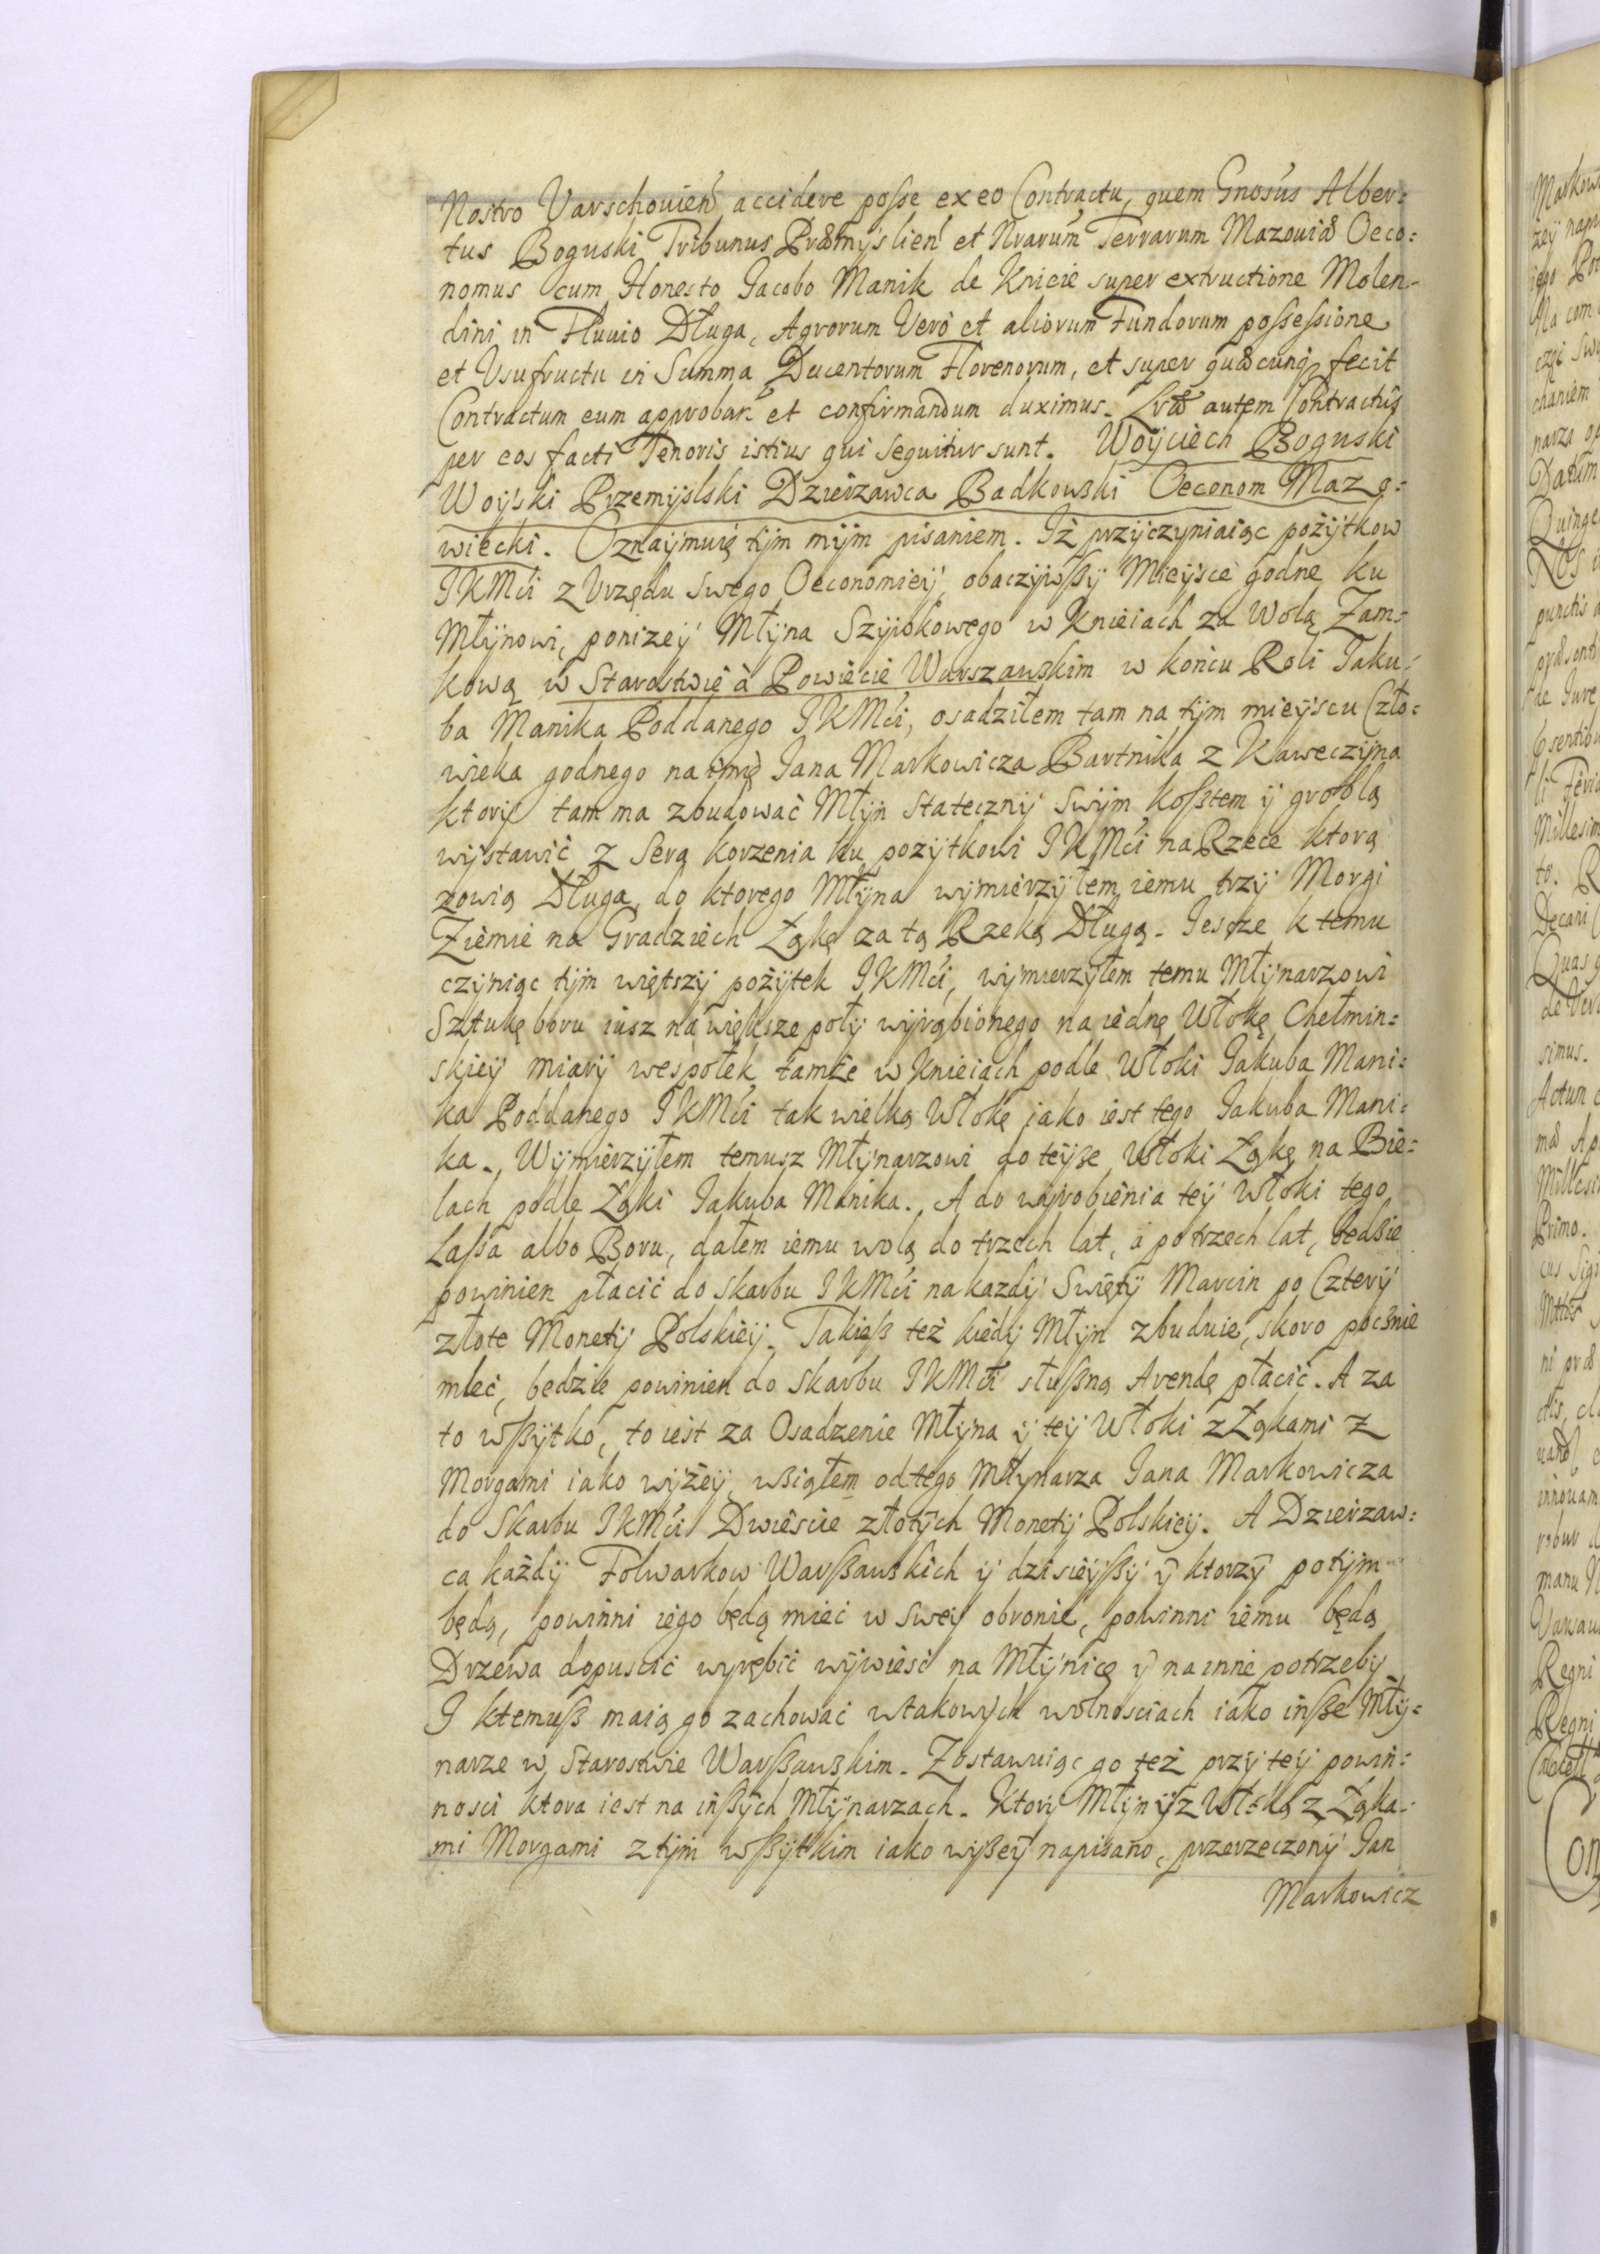 Nostro Varschouień accidere posse ex eo Contractu, quem Gnosús Alber-
tus Boguski Tribunus Præmysľień et Nrarum Terrarum Mazouiæ Oeco-
nomus cum Honesto Jacobo Manik de Knieie super extructione Molen-
dini in Fluuio Długa, Agrorum Vero et aliorum Fundorum possessione
et Vsufructu in Summa Ducentorum Florenorum, et super quæcunq fecit
Contractum eum approbań et confirmandum duximus. Lræ autem Contractus
per eos facti Tenoris istius qui sequitur sunt. Woyciech Boguski
Woyski Przemyslski Dzierzawca Badkowski Oeconom Mazo-
wiecki. Oznaymuię tym mym pisaniem. Iż przyczyniaiąc pożytkow
IKMći z Vrzędu swego Oeconomiey, obaczywßy Mieysce godne ku
Młynowi, ponizey Młyna Szyiokowego w Knieiach za Wolą Zam-
kową w Starostwie a Powiecie Warszawskim w końcu Roli Jaku-
ba Manika Poddanego IKMći, osadziłem tam na tym mieyscu Czło-
wieka godnego na imię Jana Markowicza Bartnika z Kaweczyna
ktory tam ma zbudować Młyn stateczny swym koßtem y groblą
wystawić z serą korzenia ku pozytkowi IKMći na Rzece ktorą
zowią Długa, do ktorego Młyna wymierzyłem iemu trzy Morgi
Ziemie na Gradziech Łąkę za tą Rzeką Długą. Iescze k temu
czyniąc tym większy pożytek IKMći, wymierzyłem temu Młynarzowi
Sztukę boru iusz na większe poły wyrąbionego na iednę Włokę Chełmin-
skiey miary wespołek tamże w Knieiach podle Włoki Jakuba Mani-
ka Poddanego IKMći tak wielką Włokę iako iest tego Jakuba Mani-
ka. Wymierzyłem temusz Młynarzowi do teyße Włoki Łąkę na Bie-
lach podle Łąki Jakuba Manika. A do wyrobienia tey Włoki tego
Laßa albo Boru, dałem iemu wolą do trzech lat, a po trzech lat, będzie
powinien płacić do skarbu IKMći na kazdy Swięty Marcin po Cztery
złote Monety Polskiey. Takieß też kiedy Młyn zbuduie, skoro pocznie
mleć, będzie powinien do skarbu IKMći słußną Arendę płacić. A za
to wßytko, to iest za Osadzenie Młyna y tey Włoki z Łąkami z
Morgami iako wyżey, wziąłem od tego Młynarza Jana Markowicza
do Skarbu IKMći Dwieście złotych Monety Polskiey. A Dzierzaw-
ca każdy Folwarkow Warßawskich y dzisieyßy y ktorzy potym
będą, powinni iego będą mieć w swey obronie, powinni iemu będą
Drzewa dopuscić wyrębić wywieść na Młynicę y na inne potrzeby
I ktemuß maią go zachować w takowych wolnosciach iako inße Mły-
narze w Starostwie Warßawskim. Zostawuiąc go też przy tey powin-
nosci ktora iest na inßych Młynarzach. Ktory Młyn y z Włoką z Łąka-
mi Morgami z tym wßytkim iako wyßey napisano, przerzeczony Jan
Markowicz